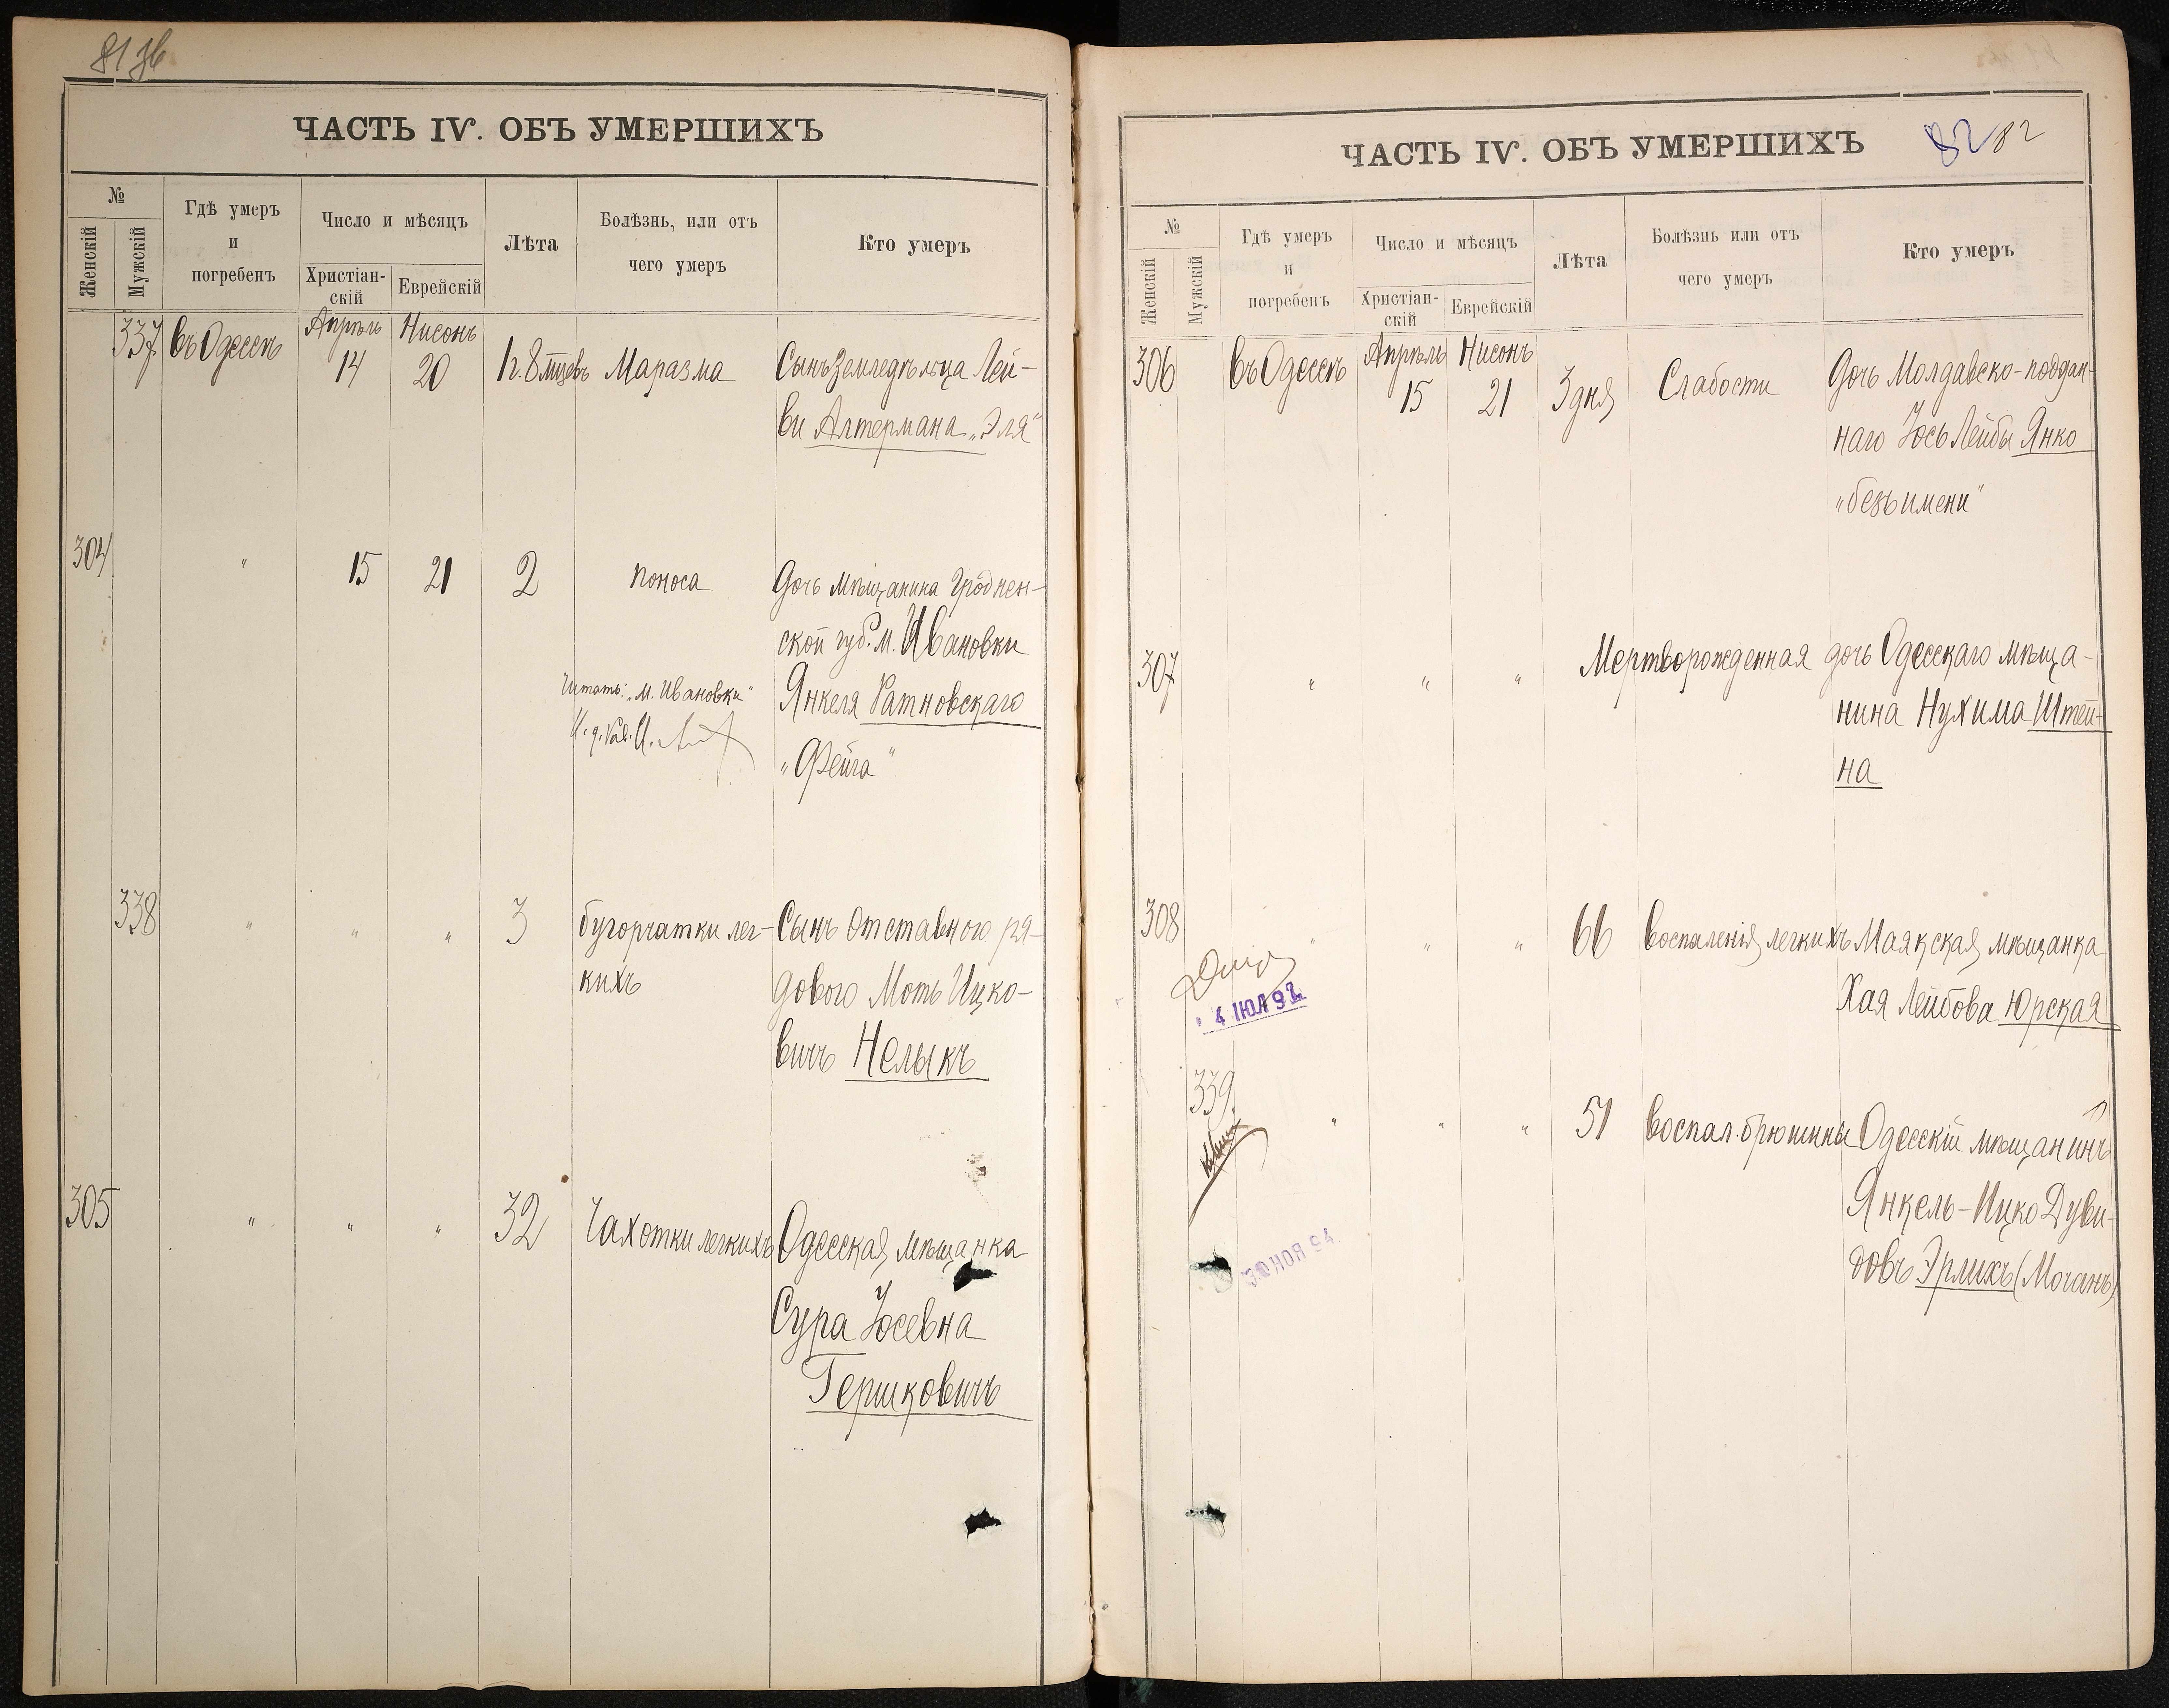 81 об
ЧАСТЬ IV. ОБЪ УМЕРШИХЪ
№
Женскій
Мужскій
Гдѣ умеръ
и
погребенъ
Число и мѣсяцъ
Христіан-
скій
Еврейскій
Лѣта
Болѣзнь, или отъ
чего умеръ
Кто умеръ
337 въ Одессѣ Апрѣль 14 Нисонъ 20 1 г. 8 мѣсвъ Маразма Сынъ Земледѣльца Лей-
ви Алтермана „Эля“
304 " 15 21 2 поноса Дочь мѣщанина Гроднен-
ской губ. м. Ивановки
Читать: „м. Ивановки“
Янкеля Ратновскаго
„Фейга“
338 " " " 3 бугорчатки лег- Сынъ отставного ря-
кихъ дового Моть Ицко-
вичъ Нелыкъ
305 " " " 32 Чахотки легкихъ Одесская мѣщанка
Сура Іосевна
Гершковичъ
ЧАСТЬ IV. ОБЪ УМЕРШИХЪ
82 82
№
Женскій
Мужскій
Гдѣ умеръ
и
погребенъ
Число и мѣсяцъ
Христіан-
скій
Еврейскій
Лѣта
Болѣзнь или отъ
чего умеръ
Кто умеръ
306 въ Одессѣ Апрѣль 15 Нисонъ 21 3 дня Слабости Дочь Молдавско-поддан-
наго Іось Лейбы Янко
„безъ имени“
307 " " " Мертворожденная дочь Одесскаго мѣща-
нина Нухима Штей-
на
308 " " " 66 Воспаленія легкихъ Маякская мѣщанка
Хая Лейбова Юрская
4 ІЮЛ 92
339. " " " 51 Воспал. брюшины Одесскій мѣщанинъ
Янкель-Ицко Дуви-
довъ Эрлихъ (Мочанъ)
30 НОЯ 94